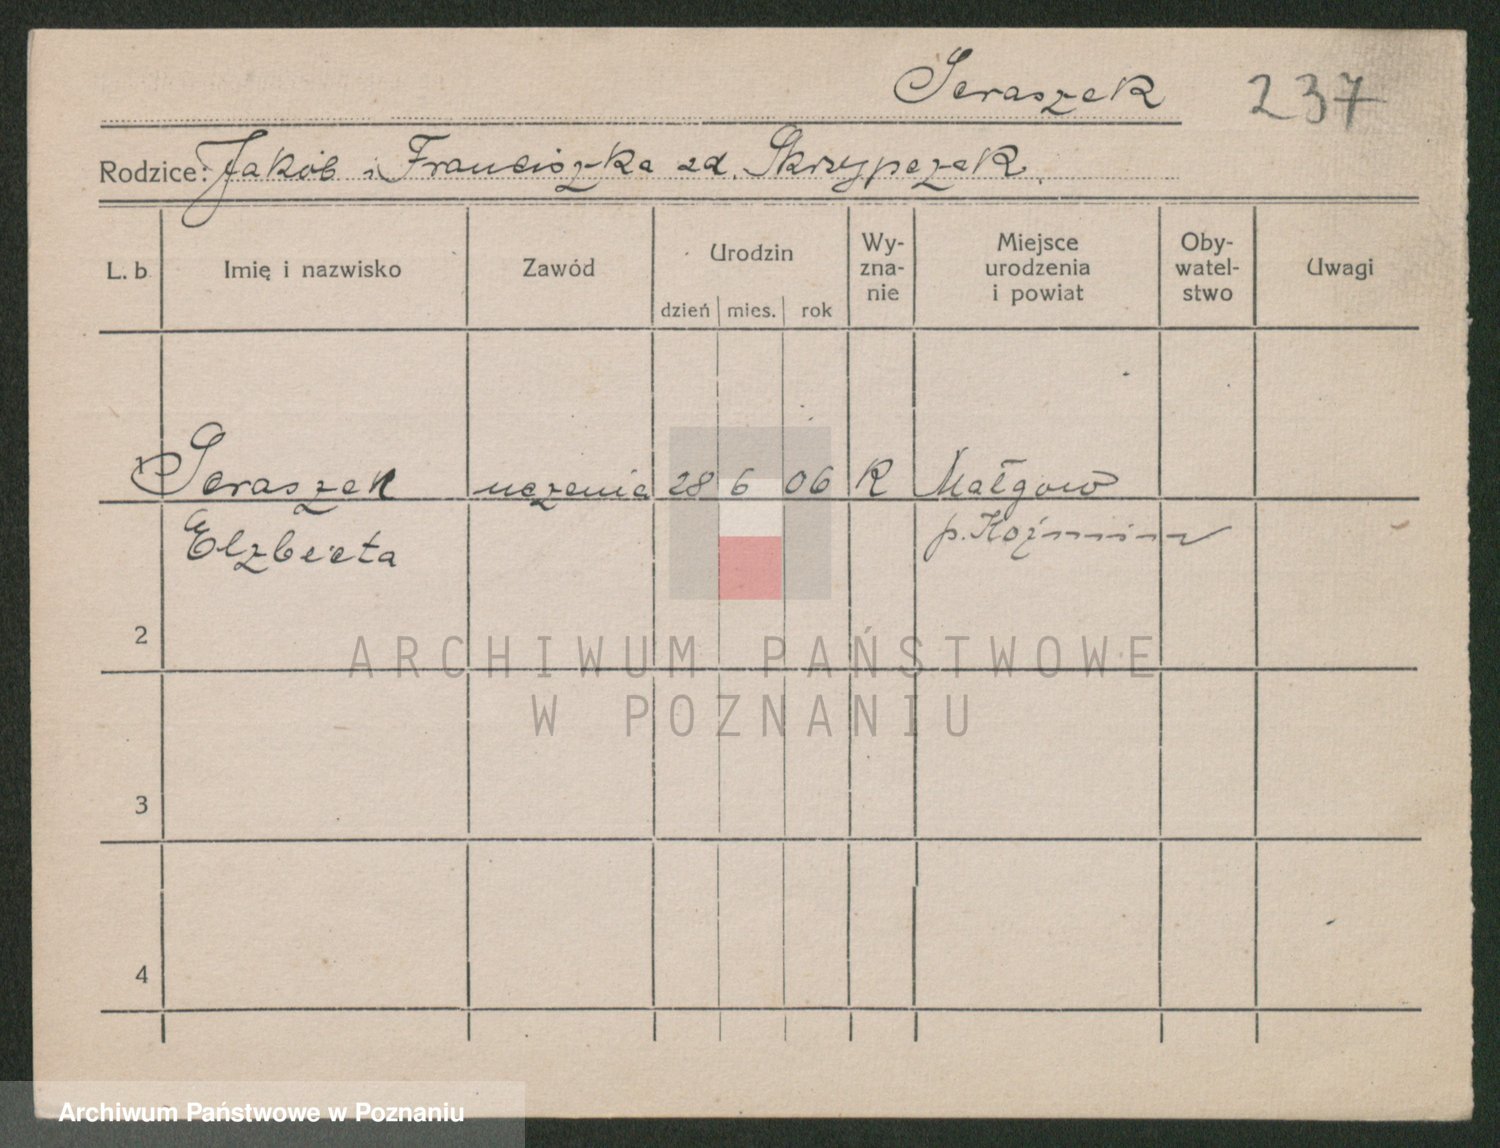 Seraszek 237
Rodzice: Jakób i Franciszka zd. Skrzypczak.
L. b Imię i nazwisko Zawód Urodzin dzień mies. rok Wy-zna-nie Miejsce urodzenia i powiat Oby-watel-stwo Uwagi
1 Seraszek uczenica 28 6 06 R Małgów
Elzbieta p. Koźmin
2
3
4
ARCHIWUM PAŃSTWOWE
W POZNANIU
Archiwum Państwowe w Poznaniu